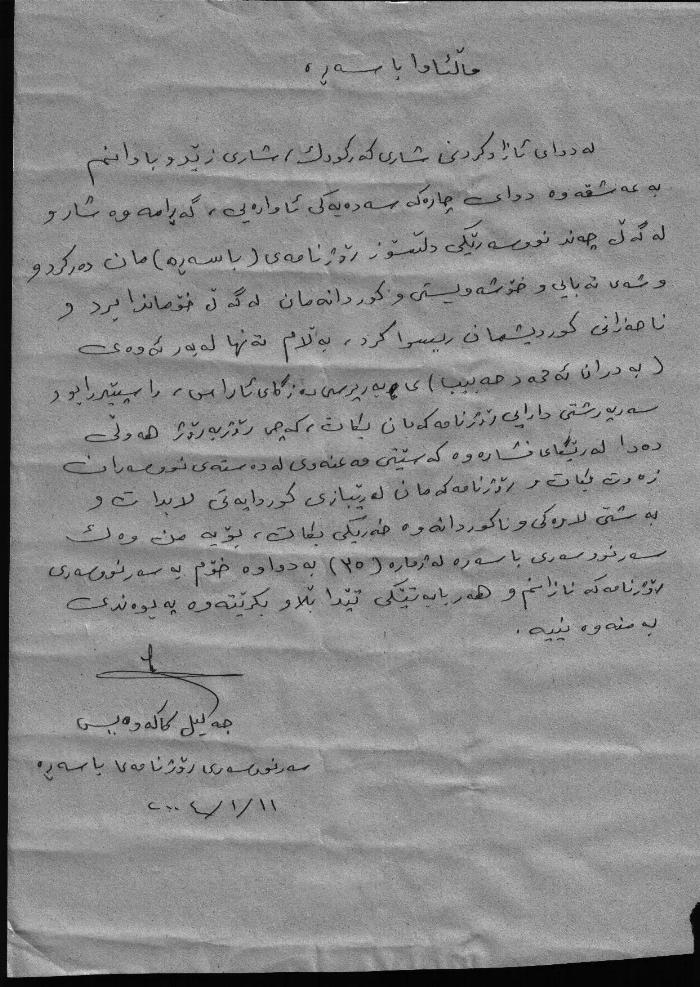 ماڵئاوا باسەڕە
لە دوای ئازادکردنی شاری کەرکووک، شاری زێد و باوانم
بە عەشقەوە دوای چارەکە سەدەیەکی ئاوارەیی، گەڕامەوە شار و
لەگەڵ چەند نووسەرێکی دڵسۆز رۆژنامەی (باسەڕە)مان دەرکرد و
وشەی تەبایی و خۆشەویستی و کوردانەمان لەگەڵ خۆماندا برد و
ناحەزانی کوردیشمان ریسوا کرد، بەڵام تەنها لەبەر ئەوەی
(بەدران ئەحمەد حەبیب)ی بەرپرسی دەزگای ئاراس، راسپێررابوو
سەرپەرشتی دارایی رۆژنامەکەمان بکات، کەچی رۆژ بەرۆژ هەوڵی
دەدا لەرێگای فشارەوە کەسێتی مەعنەوی لە دەستەی نووسەران
زەوت بکات و رۆژنامەکەمان لەڕێبازی کوردایەتی لابدات و
بە شتی لاوەکی و ناکوردانەوە خەریکی بکات، بۆیە من وەک
سەرنووسەری باسەرە لەژمارە (٣٥) بەدواوە خۆم بە سەرنووسەری
رۆژنامەکە نازانم و هەر بابەتێکی تێدا بڵاو بکرێتەوە پەیوەندی
بە منەوە نییە.
جەلیل کاکەوەیس
سەرنووسەری رۆژنامەی باسەڕە
٢٠٠٤/١/١١